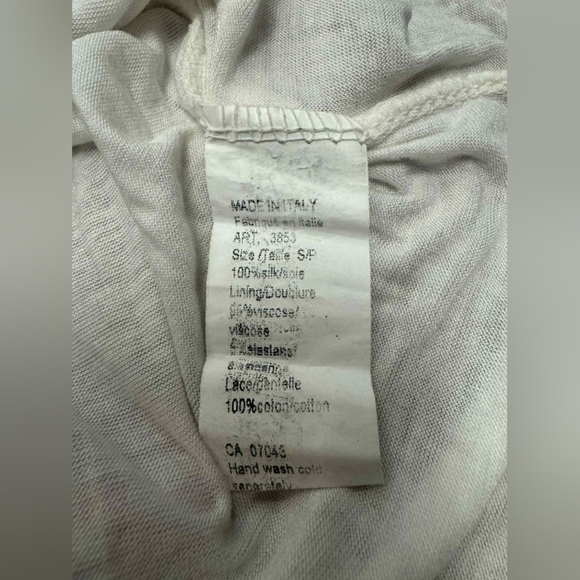 MADE IN ITALY
Fabriqué en Italie
ART. 3853
Size /Taille S/P
100%silk/soie
Lining/Doublure
95%viscose/
viscose
Lace/dentelle
100%coton/cotton
CA 07043
Hand wash cold
separately